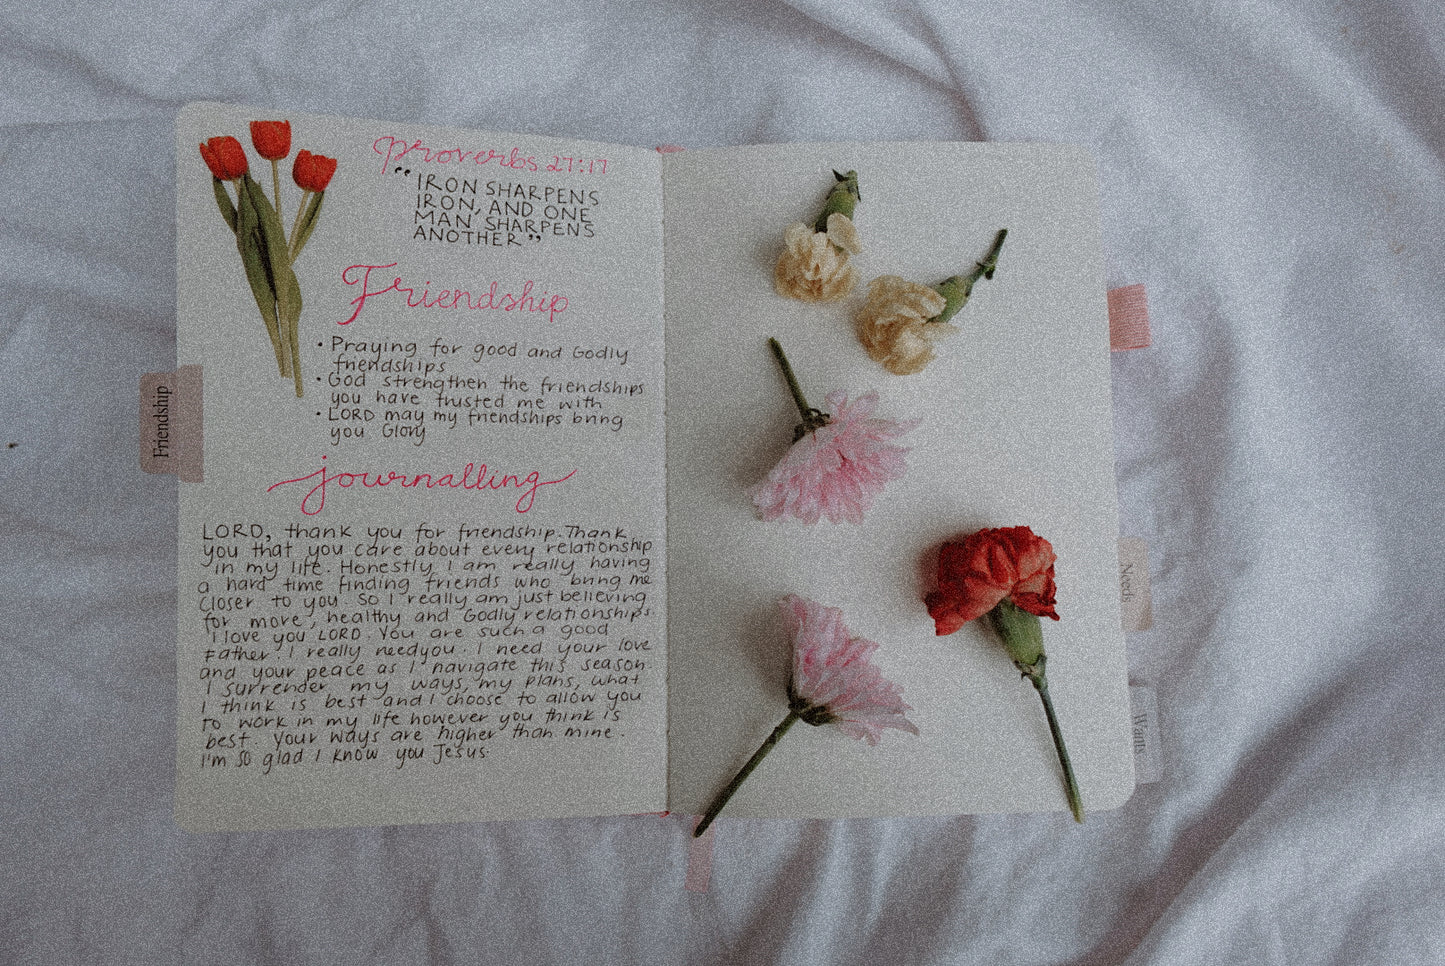 Proverbs 27:17
"IRON SHARPENS
IRON, AND ONE
MAN SHARPENS
ANOTHER"
Friendship
• Praying for good and Godly
friendships
• God strengthen the friendships
you have trusted me with
• LORD may my friendships bring
you Glory
journalling
LORD, thank you for friendship. Thank
you that you care about every relationship
in my life. Honestly I am really having
a hard time finding friends who bring me
closer to you. So I really am just believing
for more, healthy and Godly relationships.
I love you LORD. You are such a good
Father. I really need you. I need your love
and your peace as I navigate this season.
I surrender my ways, my plans, what
I think is best and I choose to allow you
to work in my life however you think is
best. Your ways are higher than mine.
I'm so glad I know you Jesus.
Friendship
Needs
Wants